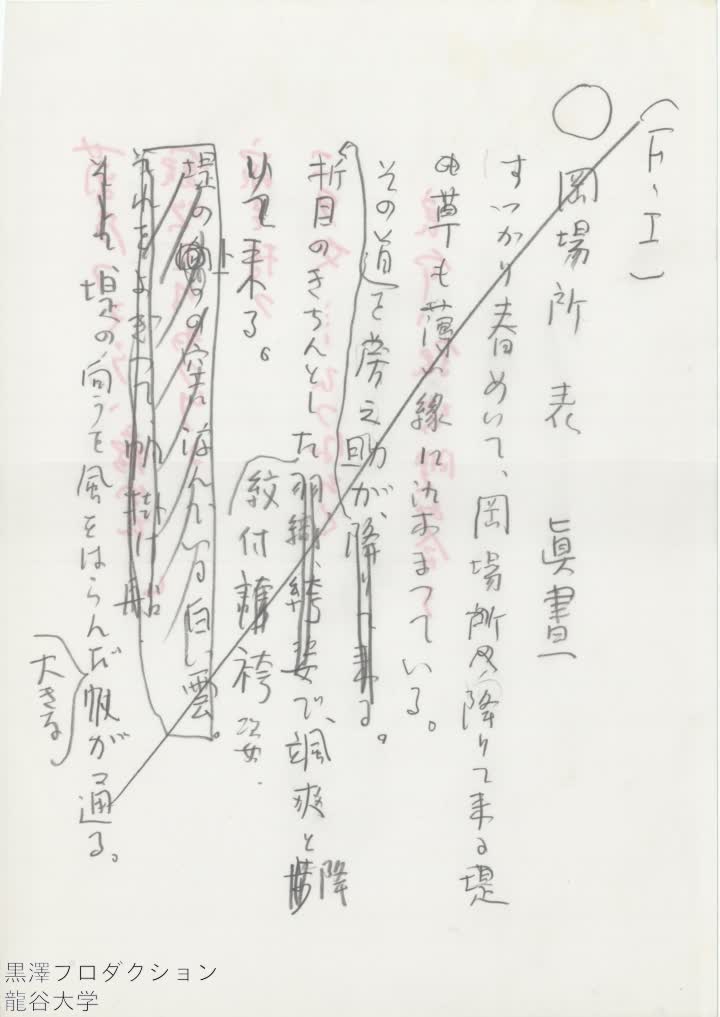 (F・I)
○ 岡場所 表 眞晝
すつかり春めいて、岡場所え降りて来る堤
の草も薄い緑に染まつている。
その道を房之助が、降りて来る。
折目のきちんとした羽織、袴姿で、颯爽と降
紋付 袴 姿
りて来る。
堤の向うの空に浮んでいる白い雲。
それをよぎつて帆掛け船
そして、堤の向うを風をはらんだ帆が通る。
大きな
黒澤プロダクション
龍谷大学